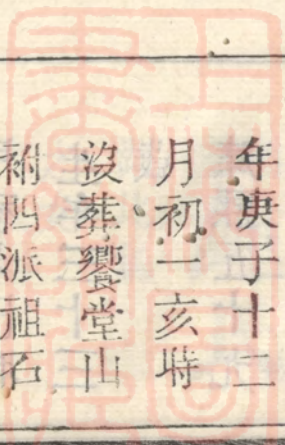 年庚子十二
月初一亥時
沒葬饗堂山
祔四派祖石